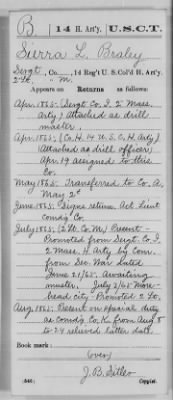 B | 14 H. Art'y. | U. S. C. T.
Sierra L. Braley
Sergt, Co. , 14 Reg't U. S. Col'd H. Art'y.
2 Lt. " M.
Appears on Returns as follows:
Apr. 1865. (Sergt Co. I. 2 Mass.
Arty) Attached as drill
master.
Apr. 1865. (Co. H. 14 U. S. C. H. Arty)
(Attached as drill officer)
Apr 19 assigned to this
Co.
May 1865. Transferred to Co. A,
May 2d
June 1865. Signs return Act. Lieut
comd'g Co.
July 1865. (2 Lt. Co. M) Present -
Promoted from Sergt. Co. I
2 Mass. H. Arty by Com.
from Sec. War dated
June 21/65. Awaiting
muster. July 2/65 More-
head city - Promoted 2 Lt.
Aug. 1865. Present on special duty
as comd'g Co. K. from Aug 8
to 29 relieved latter date.
Book mark:
(over)
J. B. Sitler
(546) Copyist.